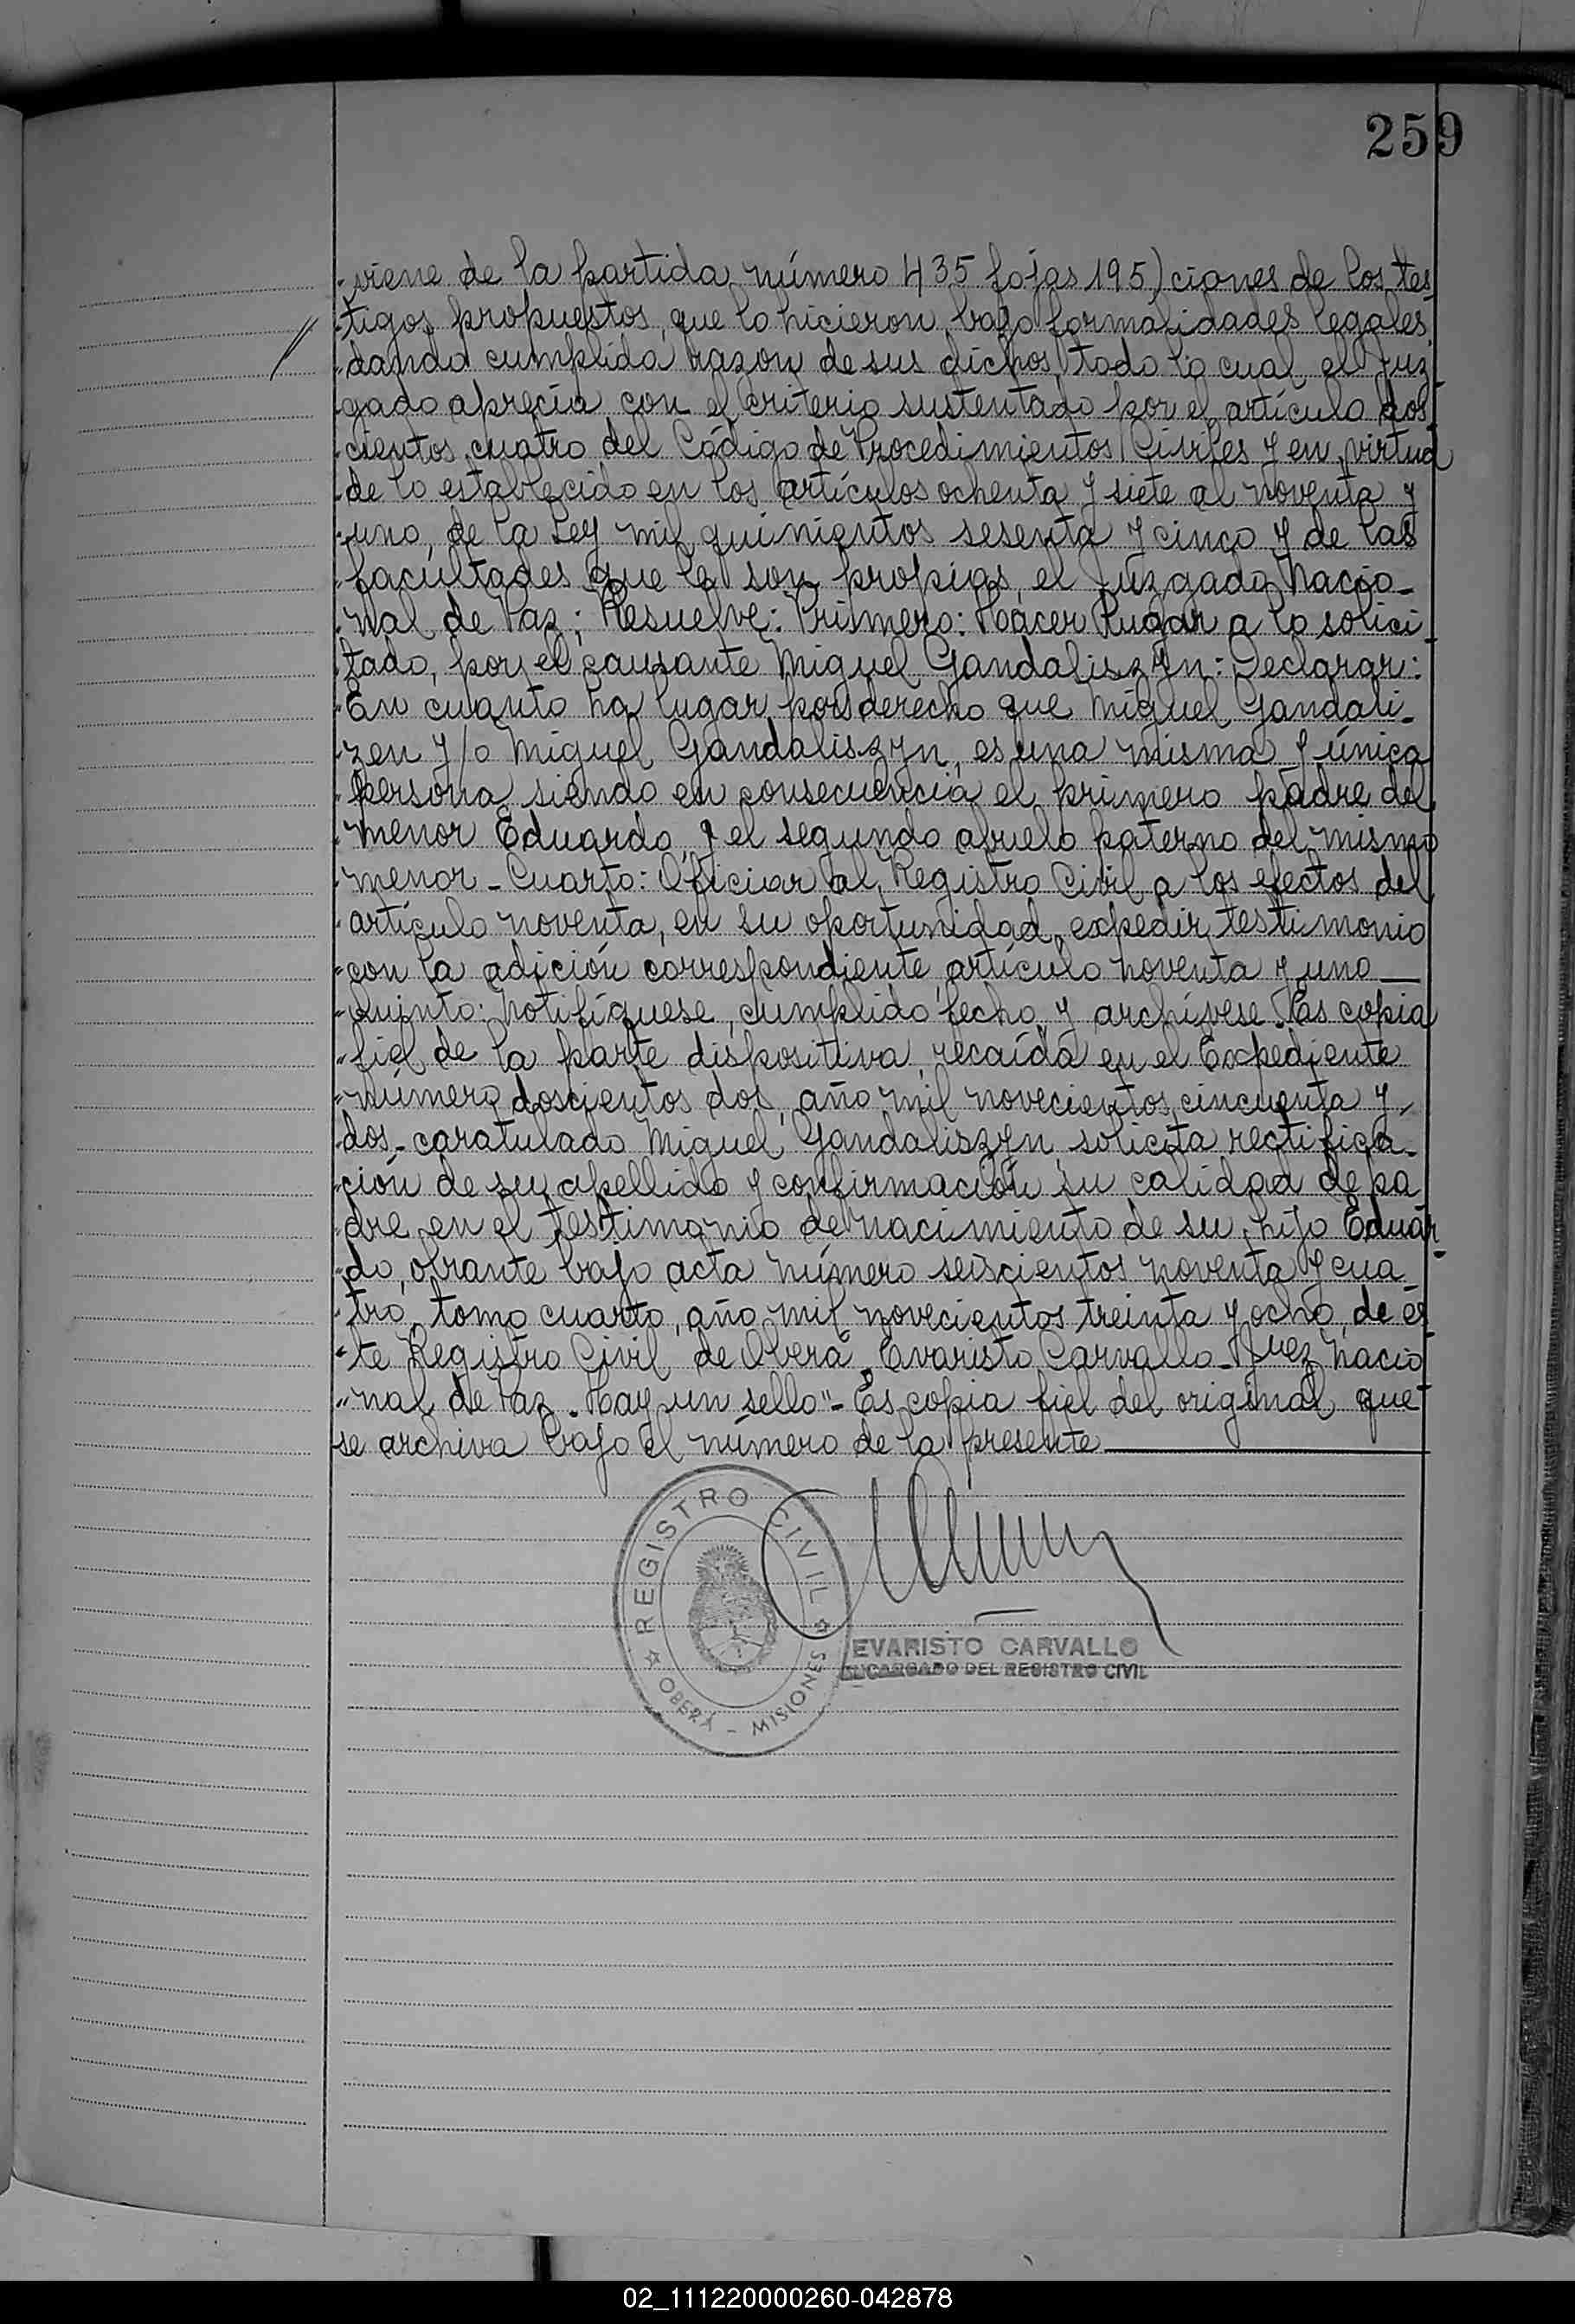 259
"viene de la partida número 435 fojas 195) ciones de los tes
"tigos propuestos, que lo hicieron bajo formalidades legales
"dando cumplida razon de sus dichos, todo lo cual el Juz-
"gado aprecia con el criterio sustentado por el artículo dos
"cientos cuatro del Código de Procedimientos Civiles y en virtud
"de lo establecido en los artículos ochenta y siete al noventa y
"uno, de la Ley mil quinientos sesenta y cinco y de las
"facultades que le son propias, el Juzgado Nacio-
"nal de Paz; Resuelve: Primero: Hacer lugar a lo solici-
"tado, por el causante Miguel Gandaliszyn: Declarar:
"En cuanto ha lugar por derecho que Miguel Gandali-
"zen y/o Miguel Gandaliszyn, es una misma y única
"persona, siendo en consecuencia el primero padre del
"menor Eduardo, y el segundo abuelo paterno del mismo
"menor - Cuarto: Oficiar al Registro Civil a los efectos del
"artículo noventa, en su oportunidad, expedir testimonio
"con la adición correspondiente artículo noventa y uno
"Quinto: Notifíquese, cumplido fecho y archívese. Es copia
"fiel de la parte dispositiva, recaída en el Expediente
"número doscientos dos, año mil novecientos cincuenta y
"dos - caratulado Miguel Gandaliszyn, solicita rectifica-
"ción de su apellido y confirmación su calidad de pa
"dre en el testimonio de nacimiento de su hijo Eduar-
"do, obrante bajo acta número seiscientos noventa y cua
"tro, tomo cuarto, año mil novecientos treinta y ocho, de es
"te Registro Civil de Oberá. Evaristo Carvallo - Juez Nacio
"nal de Paz. Hay un sello" - Es copia fiel del original que
se archiva bajo el número de la presente
REGISTRO CIVIL
OBERÁ - MISIONES
EVARISTO CARVALLO
ENCARGADO DEL REGISTRO CIVIL
02_111220000260-042878